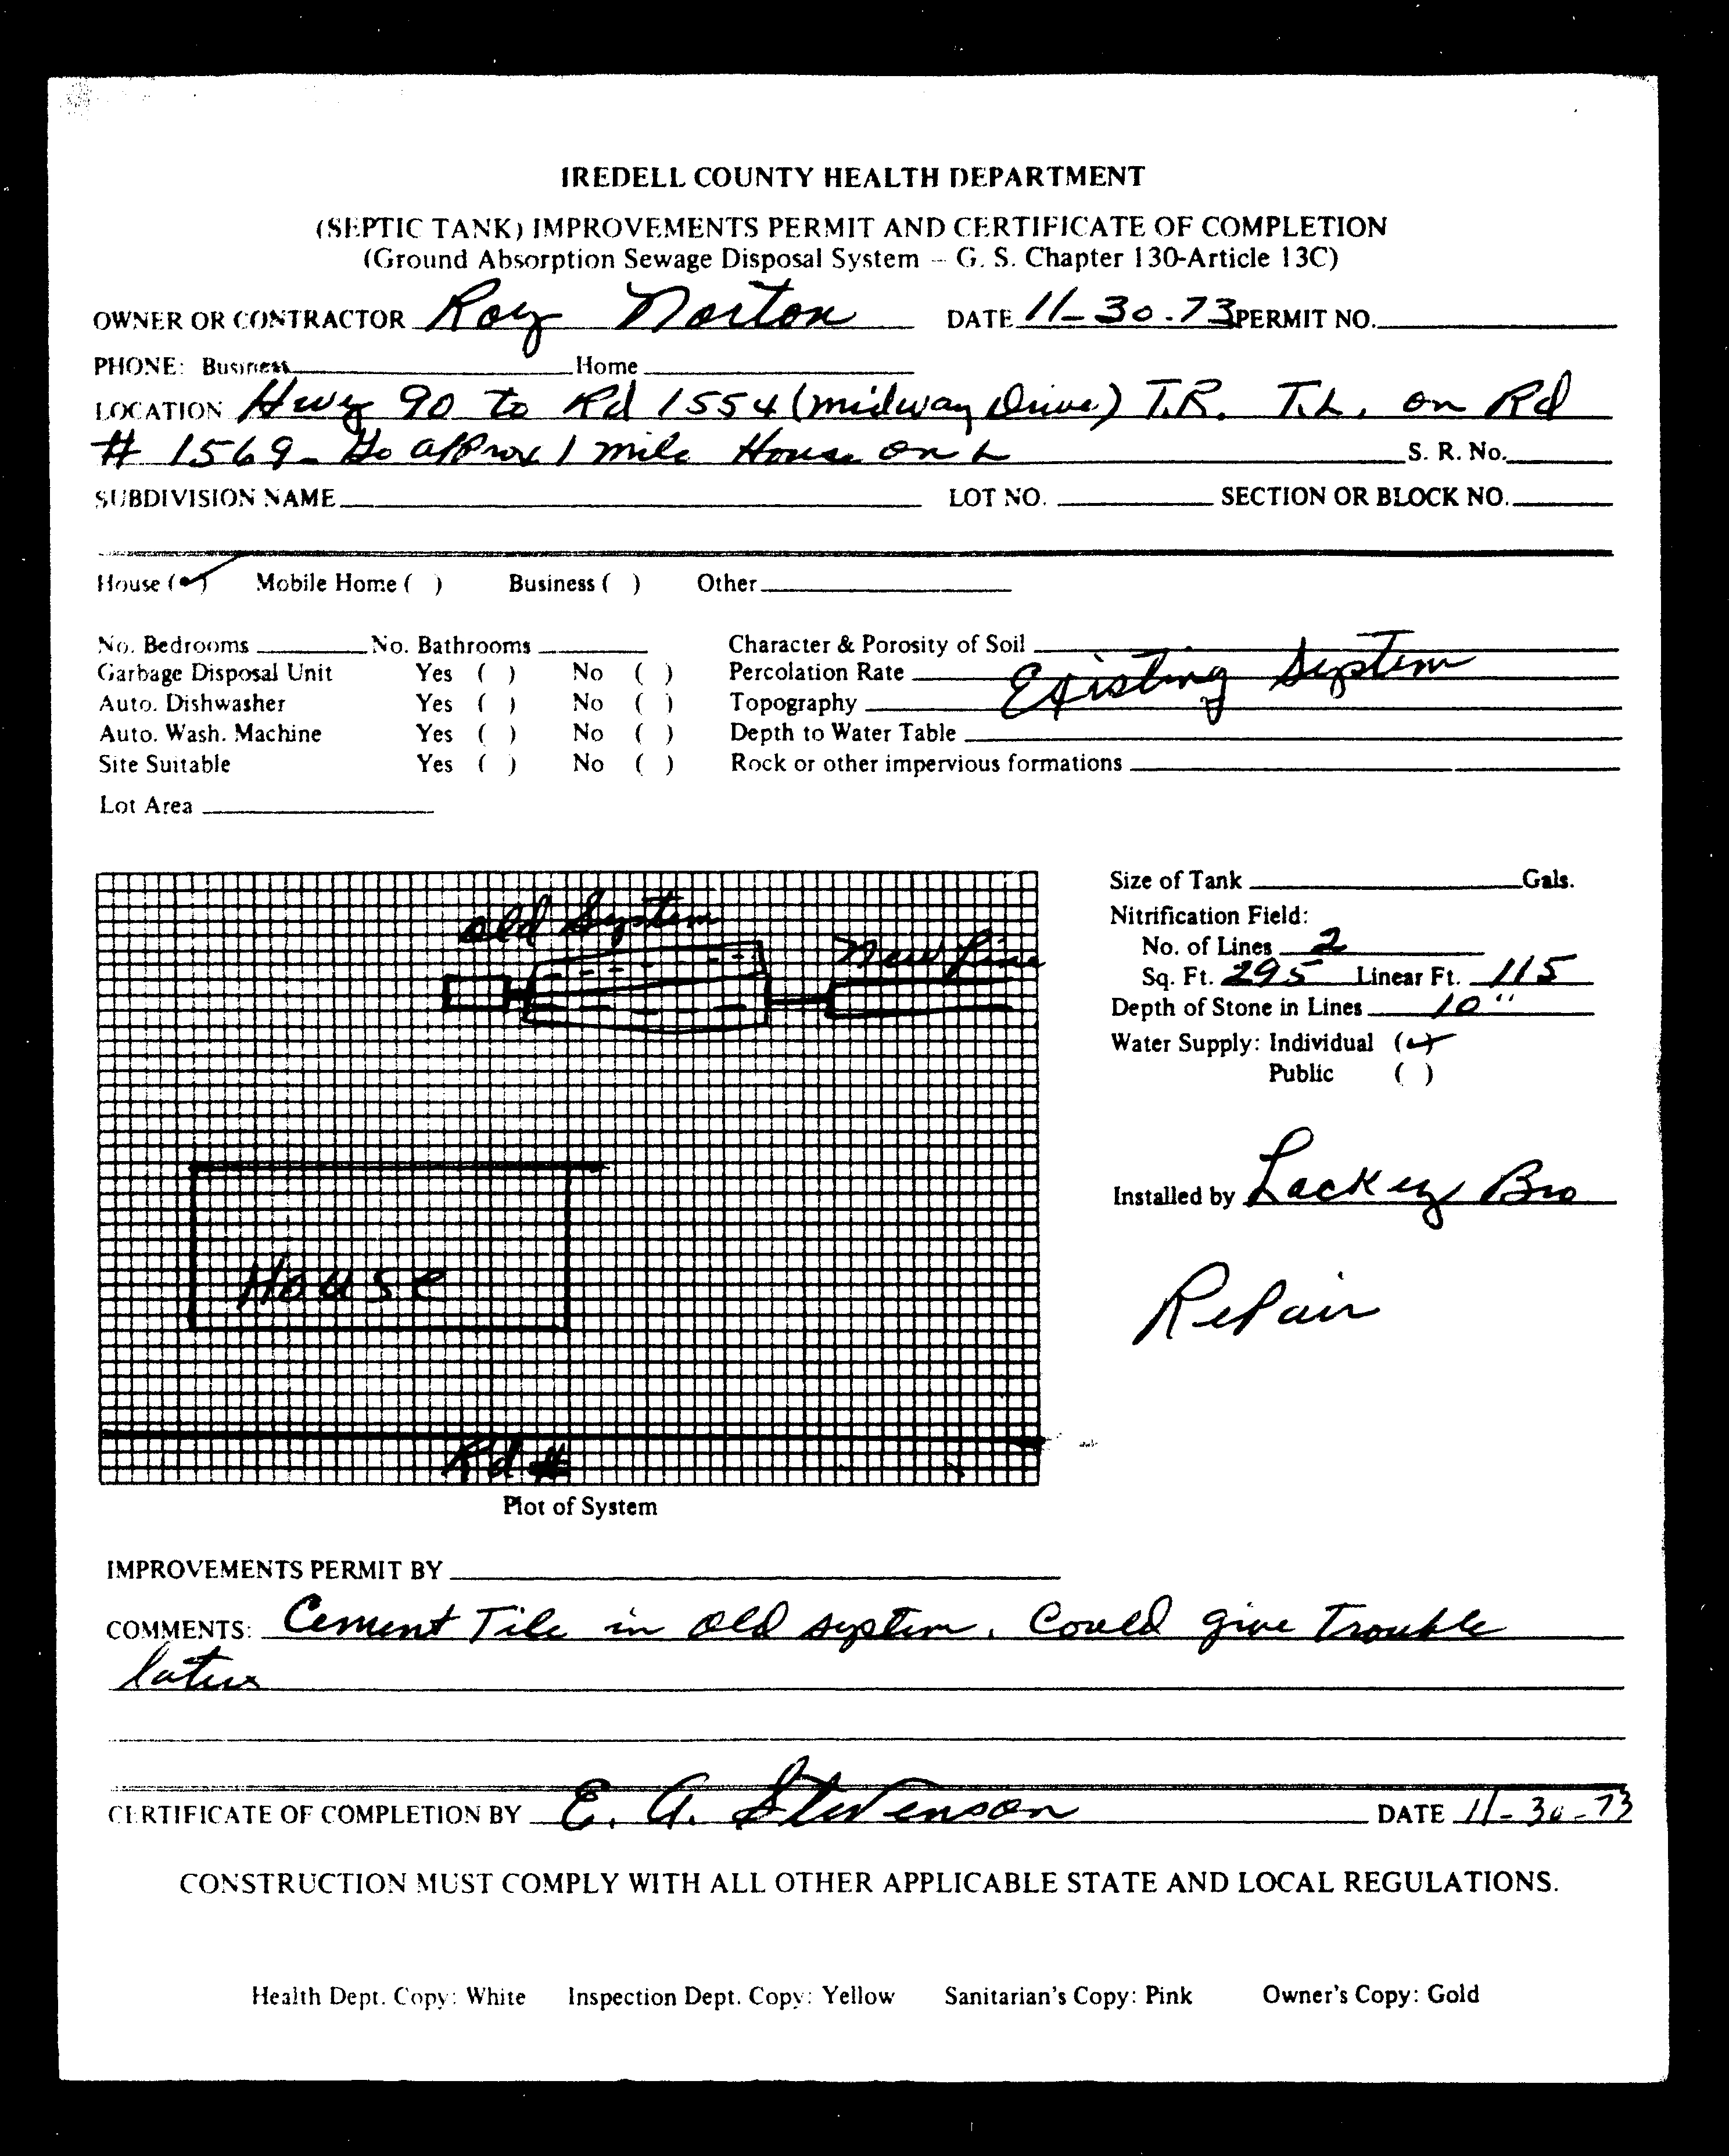 IREDELL COUNTY HEALTH DEPARTMENT
(SEPTIC TANK) IMPROVEMENTS PERMIT AND CERTIFICATE OF COMPLETION
(Ground Absorption Sewage Disposal System – G. S. Chapter 130-Article 13C)
OWNER OR CONTRACTOR Roy Norton DATE 11-30-73 PERMIT NO.
PHONE: Business Home
LOCATION Hwy 90 to Rd 1554 (midway Drive) T.R. T.L. on Rd
# 1569 - Go approx 1 mile House on L S. R. No.
SUBDIVISION NAME LOT NO. SECTION OR BLOCK NO.
House (✓) Mobile Home ( ) Business ( ) Other
No. Bedrooms No. Bathrooms Character & Porosity of Soil
Garbage Disposal Unit Yes ( ) No ( ) Percolation Rate Existing System
Auto. Dishwasher Yes ( ) No ( ) Topography
Auto. Wash. Machine Yes ( ) No ( ) Depth to Water Table
Site Suitable Yes ( ) No ( ) Rock or other impervious formations
Lot Area
Size of Tank Gals.
Nitrification Field:
No. of Lines 2
Sq. Ft. 295 Linear Ft. 115
Depth of Stone in Lines 10"
Water Supply: Individual (✓)
Public ( )
Installed by Lackey Bro
Repair
old System
New Line
House
Rd #
Plot of System
IMPROVEMENTS PERMIT BY
COMMENTS: Cement Tile in old system. Could give Trouble
later
CERTIFICATE OF COMPLETION BY E. G. Stevenson DATE 11-30-73
CONSTRUCTION MUST COMPLY WITH ALL OTHER APPLICABLE STATE AND LOCAL REGULATIONS.
Health Dept. Copy: White Inspection Dept. Copy: Yellow Sanitarian's Copy: Pink Owner's Copy: Gold